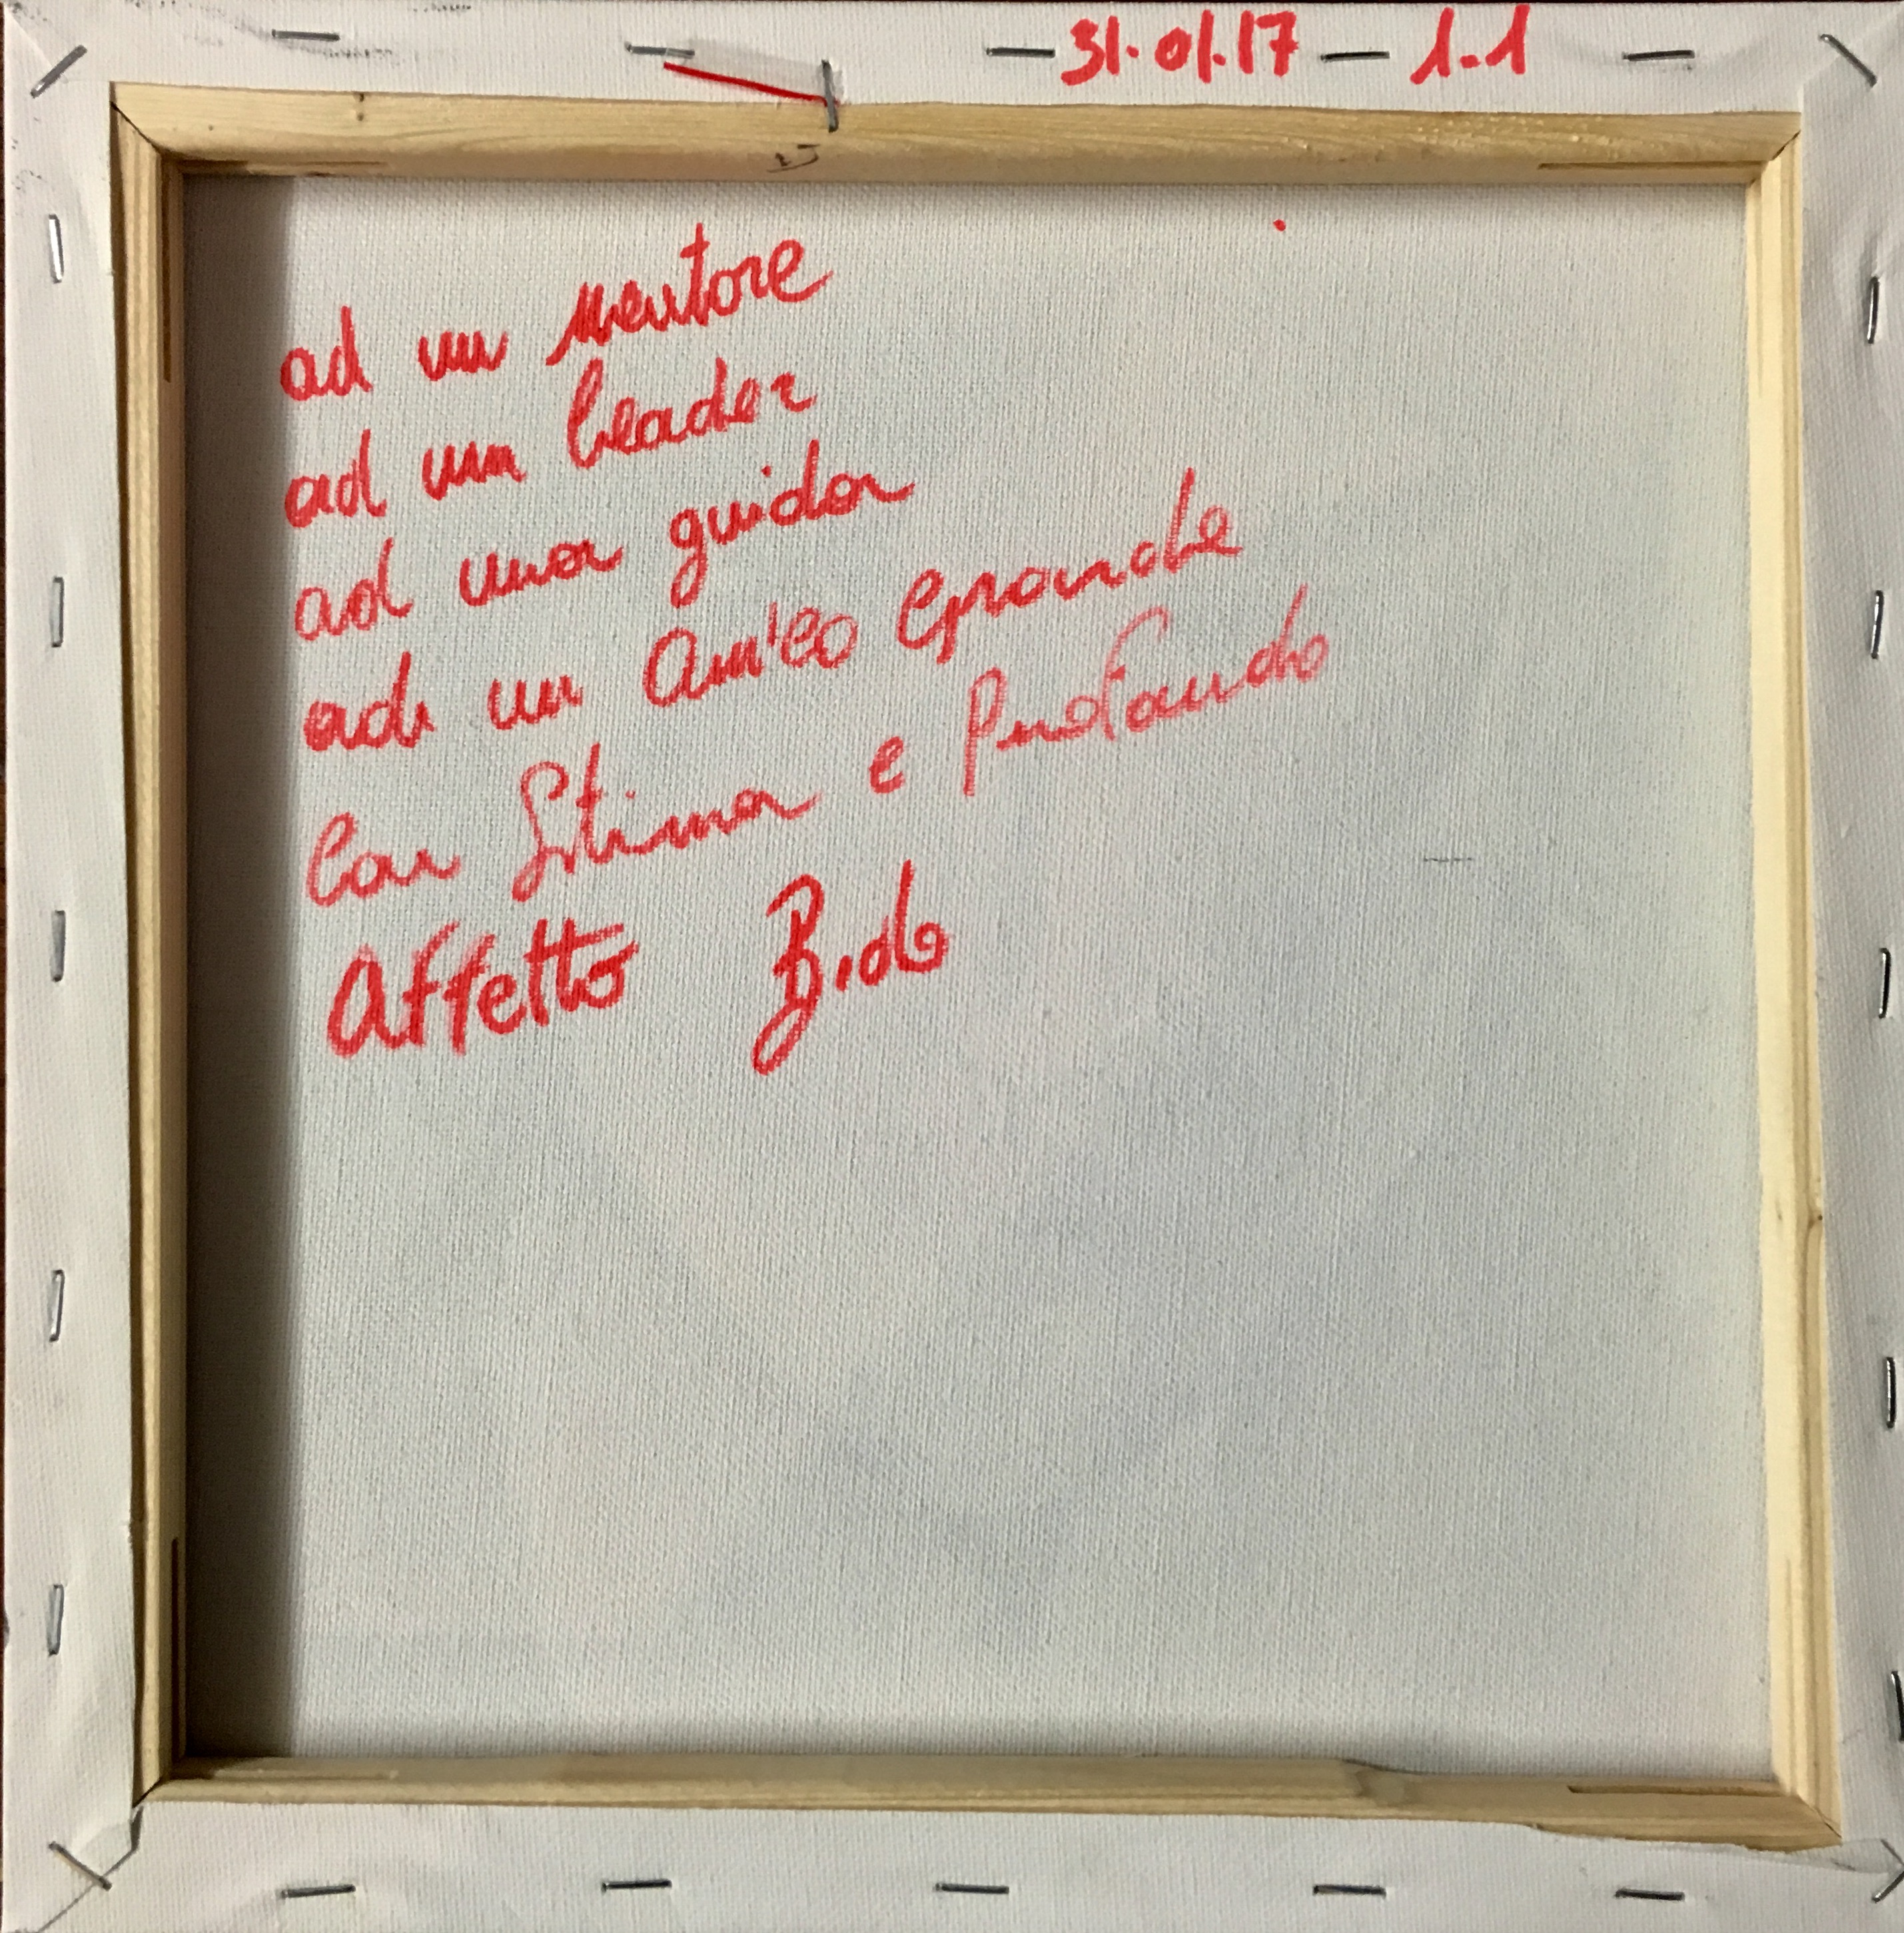 31.01.17 1.1
ad un mentore
ad un leader
ad una guida
ad un amico Grande
Con Stima e Profondo
Affetto Bido